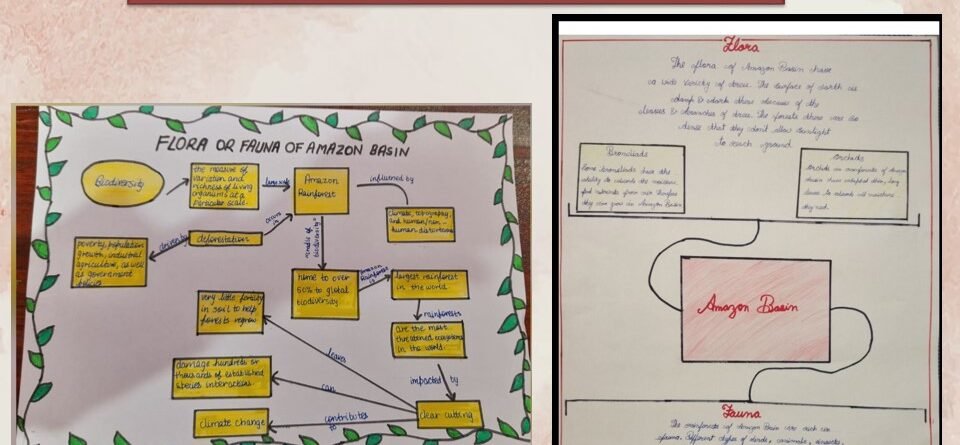 FLORA OR FAUNA OF AMAZON BASIN
Biodiversity
the measure of
variation and
richness of living
organisms at a
Perticular scale.
Amazon
Rainforest
influenced by
climate, topography,
and human/non-
human
occurs
in
deforestations
driven by
poverty, population
growth, industrial
agriculture, as well
as government
policies
biodiversity
home to over
50% to global
biodiversity
Amazon
Rainforest is
largest rainforest
in the world
rainforests
are the most
in the world.
very little fertility
in soil to help
forests regrow
leaves
damage hundreds or
thousands of established
species interactions.
can
impacted by
clear cutting
climate change
contributes
to
Flora
The flora of Amazon Basin have
a wide variety of trees. The surface of earth is
damp & dark there because of the
leaves & branches of trees. The forests there are so
dense that they don't allow sunlight
to reach ground.
Bromeliads
Some bromeliads have the
ability to absorb the moisture,
Orchids
Amazon Basin
Fauna
The rainforests of Amazon Basin are rich in
fauna. Different